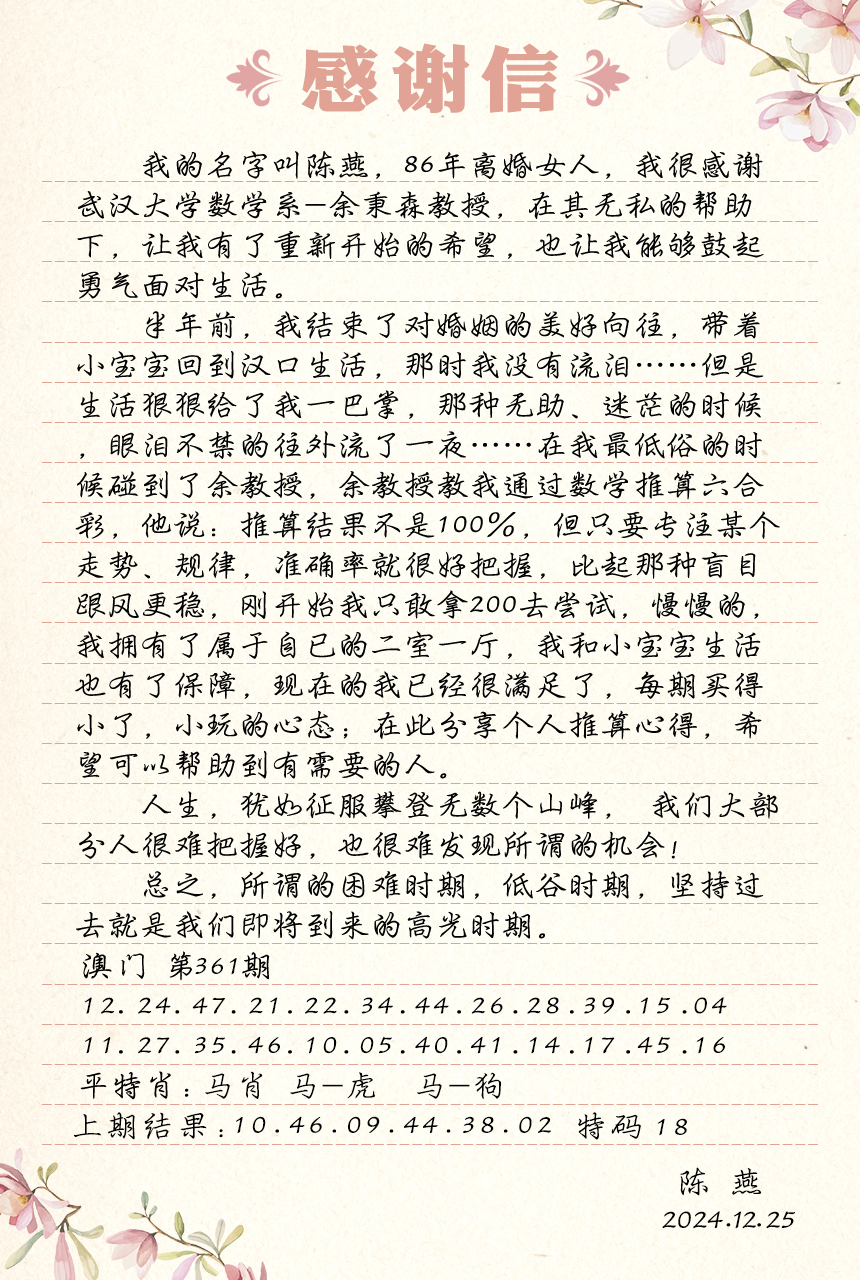 感谢信
我的名字叫陈燕，86年离婚女人，我很感谢
武汉大学数学系—余秉森教授，在其无私的帮助
下，让我有了重新开始的希望，也让我能够鼓起
勇气面对生活。
半年前，我结束了对婚姻的美好向往，带着
小宝宝回到汉口生活，那时我没有流泪……但是
生活狠狠给了我一巴掌，那种无助、迷茫的时候
，眼泪不禁的往外流了一夜……在我最低俗的时
候碰到了余教授，余教授教我通过数学推算六合
彩，他说：推算结果不是100%，但只要专注某个
走势、规律，准确率就很好把握，比起那种盲目
跟风更稳，刚开始我只敢拿200去尝试，慢慢的，
我拥有了属于自已的二室一厅，我和小宝宝生活
也有了保障，现在的我已经很满足了，每期买得
小了，小玩的心态；在此分享个人推算心得，希
望可以帮助到有需要的人。
人生，犹如征服攀登无数个山峰， 我们大部
分人很难把握好，也很难发现所谓的机会！
总之，所谓的困难时期，低谷时期，坚持过
去就是我们即将到来的高光时期。
澳门 第361期
12.24.47.21.22.34.44.26.28.39.15.04
11.27.35.46.10.05.40.41.14.17.45.16
平特肖：马肖 马—虎 马—狗
上期结果：10.46.09.44.38.02 特码 18
陈 燕
2024.12.25